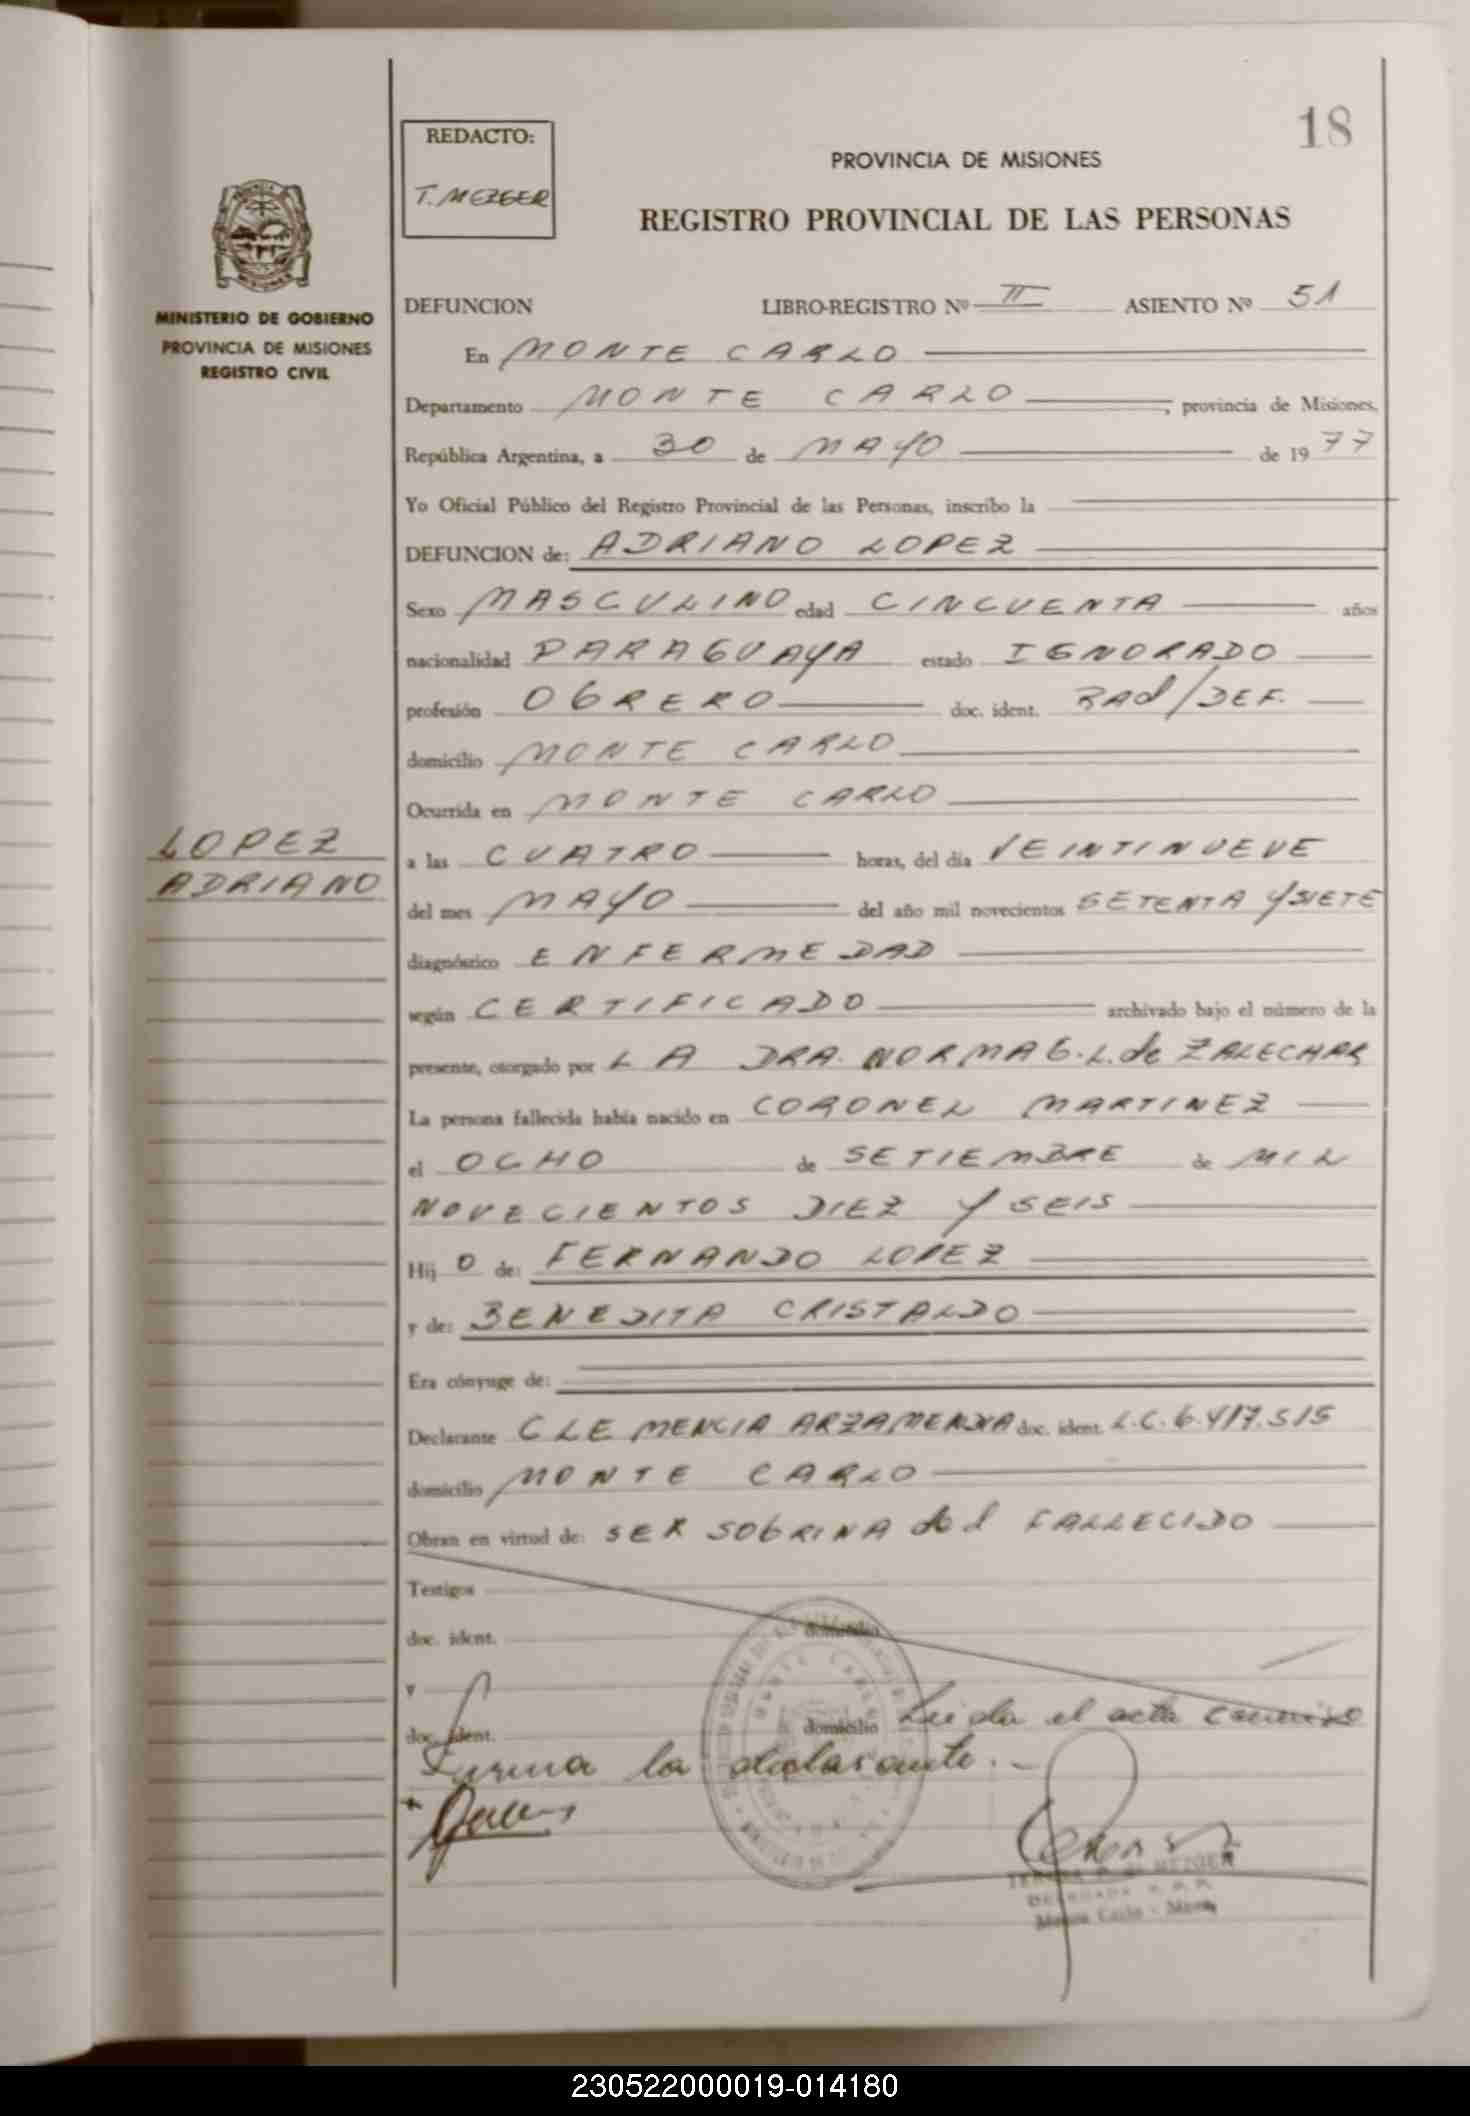 18
REDACTO:
T. MEZGER
PROVINCIA DE MISIONES
REGISTRO PROVINCIAL DE LAS PERSONAS
MINISTERIO DE GOBIERNO
PROVINCIA DE MISIONES
REGISTRO CIVIL
DEFUNCION LIBRO-REGISTRO Nº II ASIENTO Nº 51
En MONTE CARLO
Departamento MONTE CARLO, provincia de Misiones,
República Argentina, a 30 de MAYO de 1977
Yo Oficial Público del Registro Provincial de las Personas, inscribo la
DEFUNCION de: ADRIANO LOPEZ
Sexo MASCULINO edad CINCUENTA años
nacionalidad PARAGUAYA estado IGNORADO
profesión OBRERO doc. ident. RAd/DEF.
domicilio MONTE CARLO
Ocurrida en MONTE CARLO
LOPEZ
ADRIANO
a las CUATRO horas, del día VEINTINUEVE
del mes MAYO del año mil novecientos SETENTA Y SIETE
diagnóstico ENFERMEDAD
según CERTIFICADO archivado bajo el número de la
presente, otorgado por LA DRA. NORMA G. L. de ZALECHAR
La persona fallecida había nacido en CORONEL MARTINEZ
el OCHO de SETIEMBRE de MIL
NOVECIENTOS DIEZ Y SEIS
Hij O de: FERNANDO LOPEZ
y de: BENEDITA CRISTALDO
Era cónyuge de:
Declarante CLEMENCIA ARZAMENDIA doc. ident. L.C. 6.417.515
domicilio MONTE CARLO
Obran en virtud de: SER SOBRINA del FALLECIDO
Testigos
doc. ident. domicilio
y
doc. ident. domicilio Leida el acta conmigo
Firma la declarante.
Monte Carlo - Mnes.
230522000019-014180